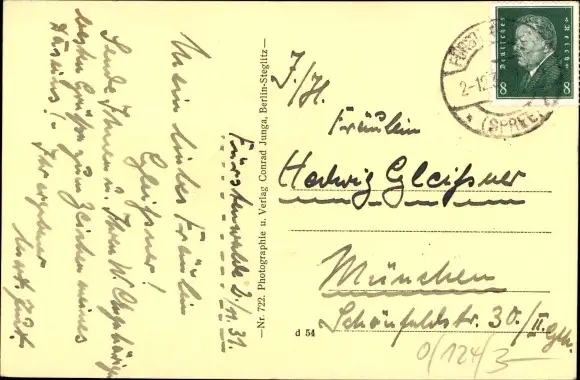 Mein liebes Fräulein
Gleißner!
Sende Ihnen u. Ihren W. Angehörigen
besten Grüße zum Zeichen meines
Ihr ergebener
Fürstenwalde 2./11. 31.
—Nr. 722. Photographie u. Verlag Conrad Junga, Berlin-Steglitz—
d 54
Deutsches Reich
8 8
2-12.3
(SPREE)
Fräulein
Hedwig Gleißner
München
Schönfeldstr. 30./II. Gth.
0/124/3-